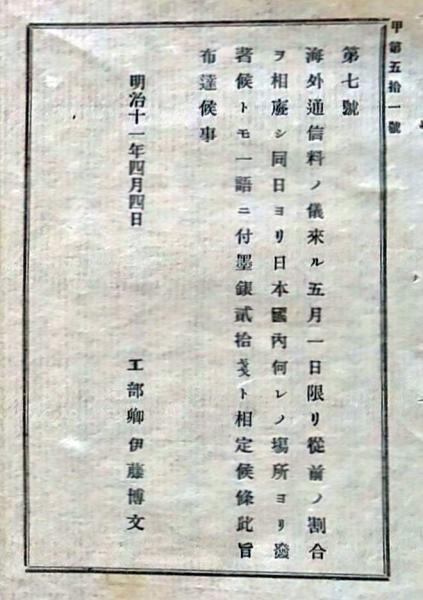 甲第五拾一號
第七號
海外通信料ノ儀來ル五月一日限リ從前ノ割合
ヲ相廢シ同日ヨリ日本國內何レノ場所ヨリ發
著候トモ一語ニ付墨銀貳拾戔ト相定候條此旨
布達候事
明治十一年四月四日
工部卿伊藤博文